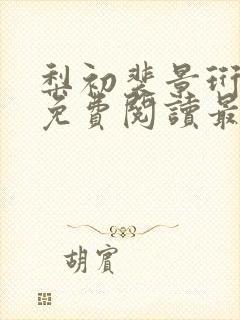 梨初裴景珩
免費閱讀最
胡賓